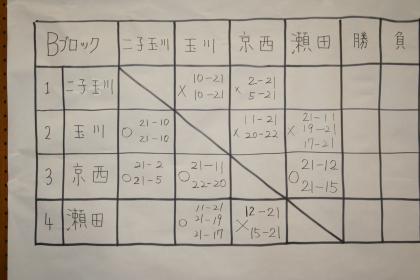 Bブロック 二子玉川 玉川 京西 瀬田 勝 負
1 二子玉川 × 10-21 10-21 × 2-21 5-21
2 玉川 ○ 21-10 21-10 × 11-21 20-22 × 21-11 19-21 17-21
3 京西 ○ 21-2 21-5 ○ 21-11 22-20 ○ 21-12 21-15
4 瀬田 ○ 11-21 21-19 21-17 × 12-21 15-21